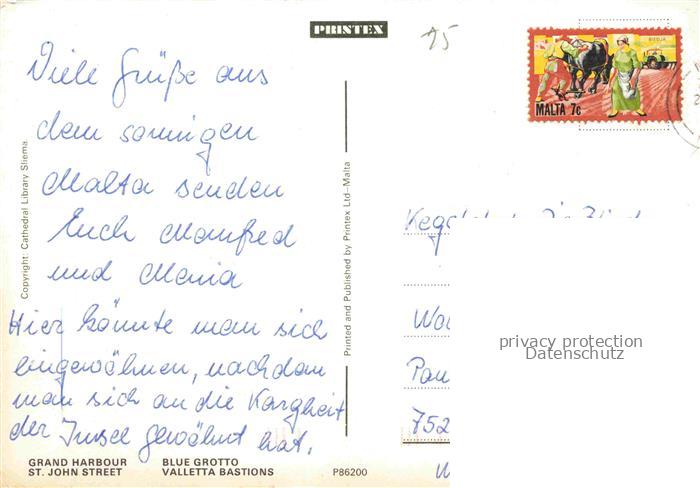 PRINTEX
75
BIDJA
MALTA 7c
Viele Grüße aus
dem sonnigen
Malta senden
Euch Manfred
und Maria
Hier könnte man sich
eingewöhnen, nachdem
man sich an die Kargheit
der Insel gewöhnt hat.
Copyright: Cathedral Library Sliema.
Printed and Published by Printex Ltd–Malta
752
privacy protection
Datenschutz
GRAND HARBOUR
ST. JOHN STREET
BLUE GROTTO
VALLETTA BASTIONS
P86200